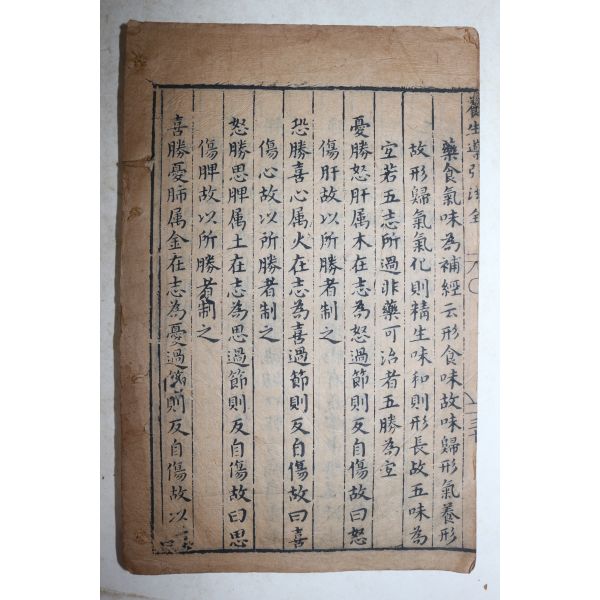 養生導引法全
藥食氣味為補經云形食味故味歸形氣養形
故形歸氣氣化則精生味和則形長故五味為
宜若五志所過非藥可治者五勝為宜
憂勝怒肝属木在志為怒過節則反自傷故曰怒
傷肝故以所勝者制之
恐勝喜心属火在志為喜過節則反自傷故曰喜
傷心故以所勝者制之
怒勝思脾属土在志為思過節則反自傷故曰思
傷脾故以所勝者制之
喜勝憂肺属金在志為憂過節則反自傷故以